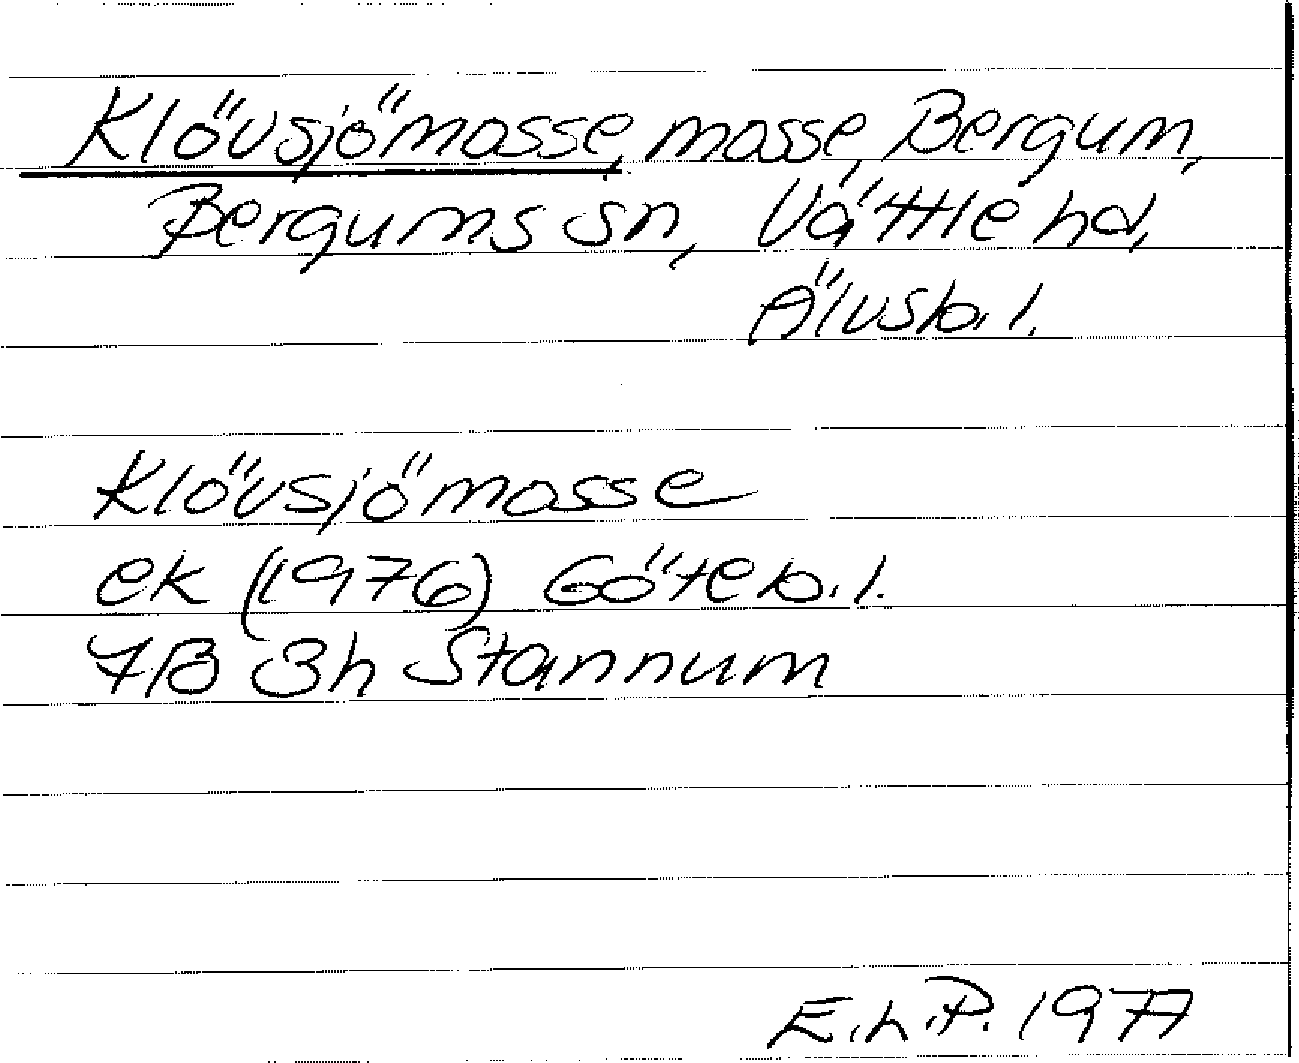 Klövsjömosse, mosse, Bergum,
Bergums sn, Vättle hd,
Älvsb. l.
Klövsjömosse
ek (1976) Göteb. l.
7B 3h Stannum
E.h.P. 1977